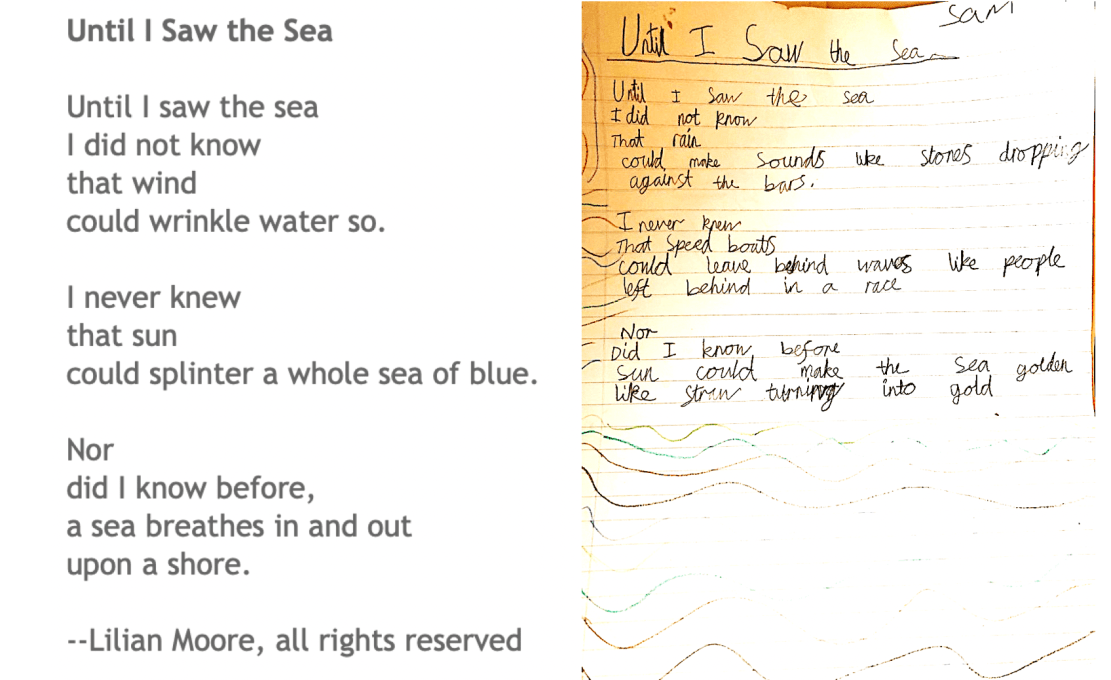 Until I Saw the Sea
Until I saw the sea
I did not know
that wind
could wrinkle water so.
I never knew
that sun
could splinter a whole sea of blue.
Nor
did I know before,
a sea breathes in and out
upon a shore.
--Lilian Moore, all rights reserved
Sam
Until I Saw the Sea
Until I saw the sea
I did not know
That rain
could make sounds like stones dropping
against the bars.
I never knew
That speed boats
could leave behind waves like people
left behind in a race
Nor
Did I know before
sun could make the sea golden
like straw turning into gold